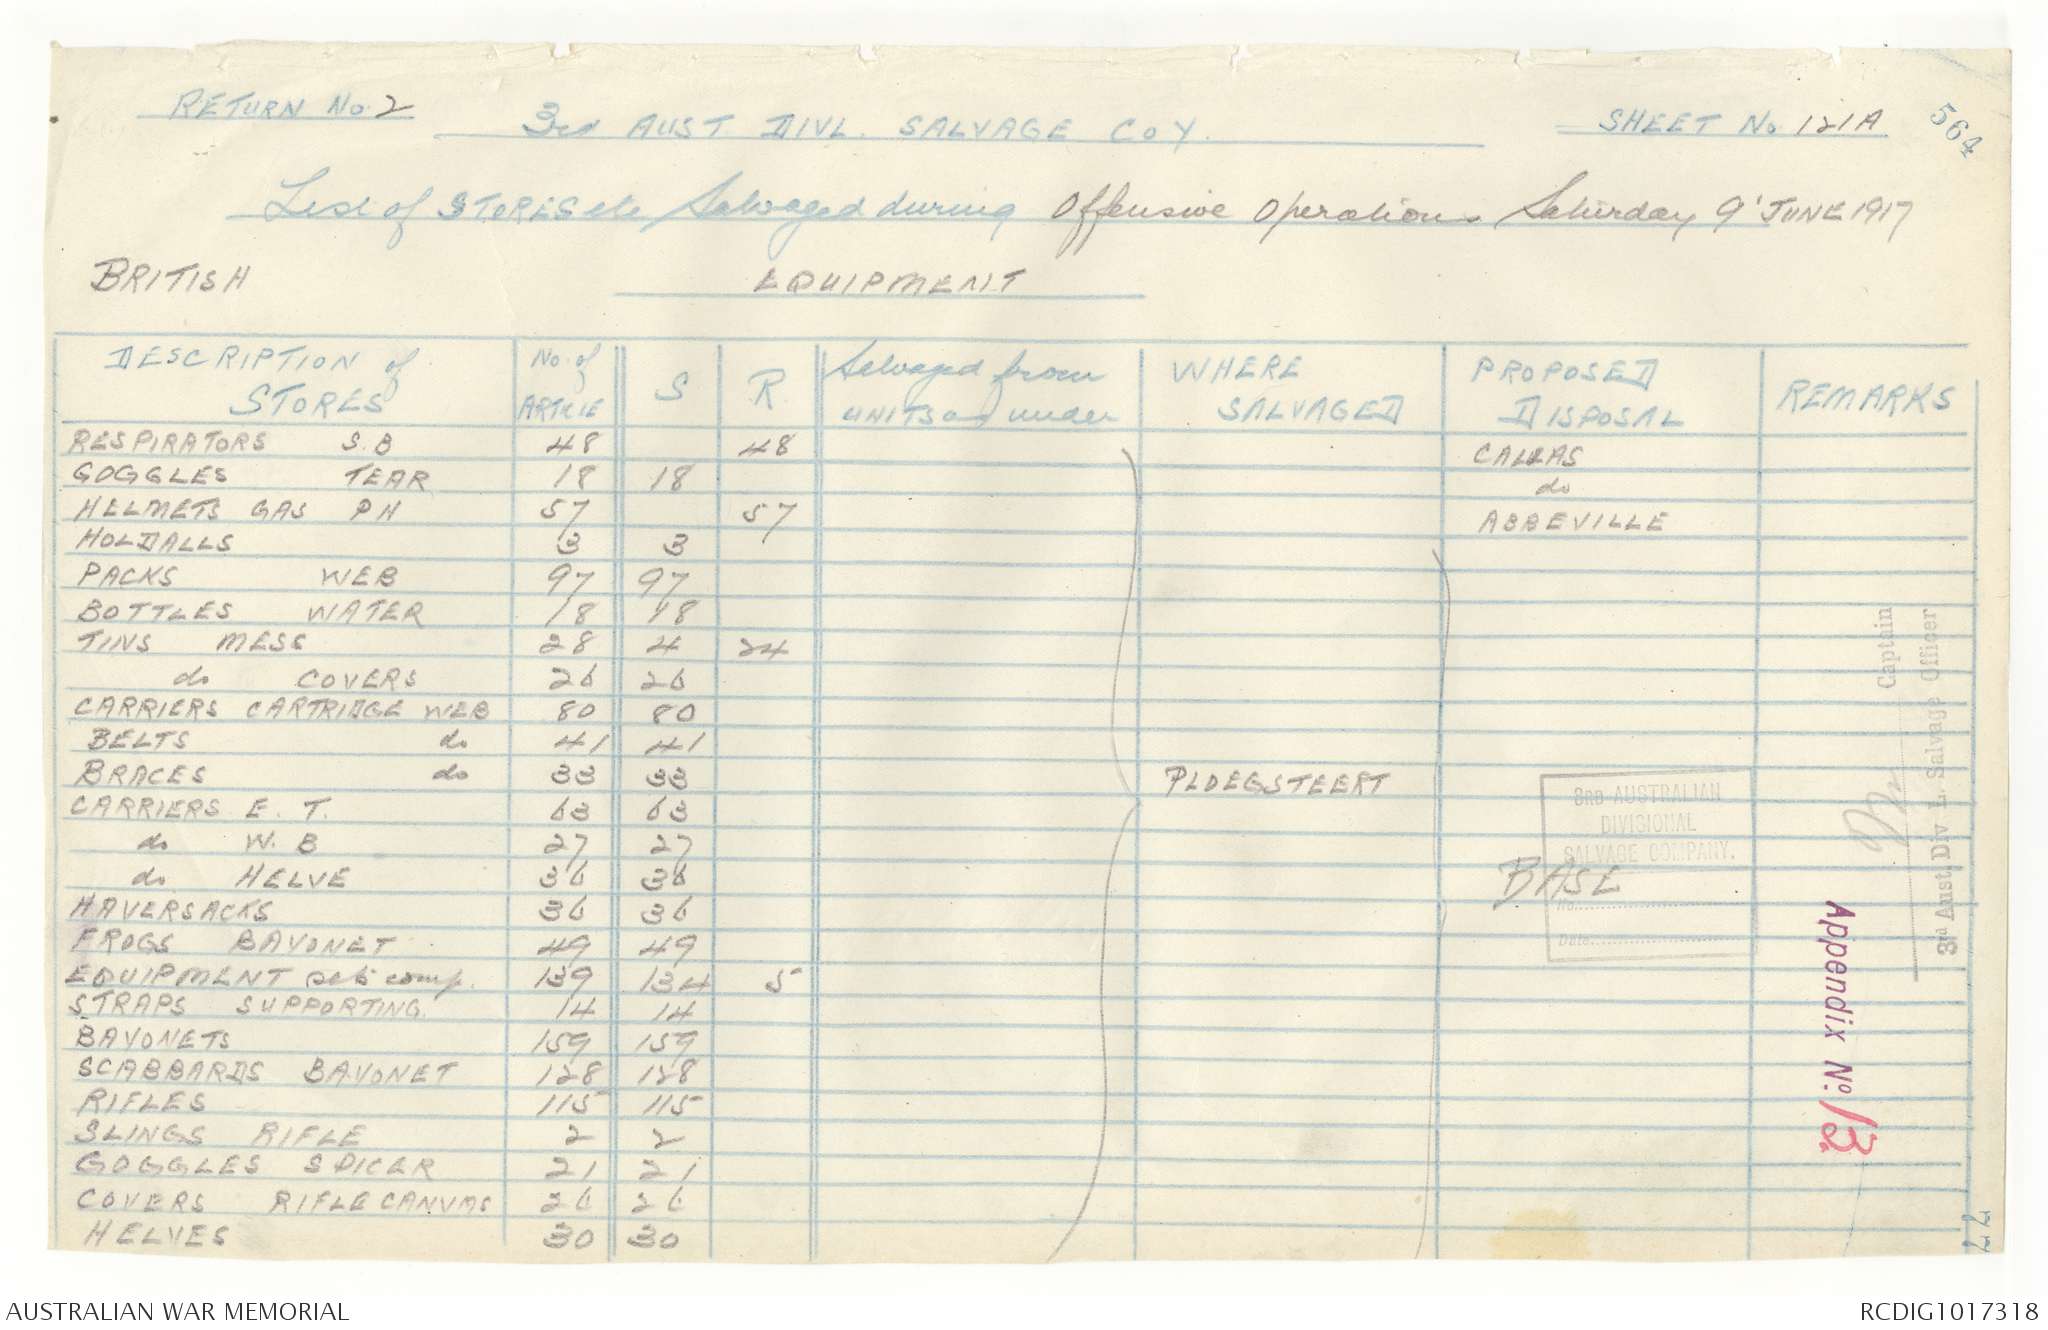 RETURN No. 2
3rd AUST DIVL. SALVAGE COY.
SHEET No. 121A
564
List of STORES etc Salvaged during Offensive Operations Saturday 9' JUNE 1917
BRITISH EQUIPMENT
DESCRIPTION of STORES No. of ARTICLE S R. Salvaged from UNITS as under WHERE SALVAGED PROPOSED DISPOSAL REMARKS
RESPIRATORS S.B 48 48 CALLAS
GOGGLES TEAR 18 18 do
HELMETS GAS PH 57 57 ABBEVILLE
HOLDALLS 3 3
PACKS WEB 97 97
BOTTLES WATER 18 18
TINS MESS 28 4 24
do COVERS 26 26
CARRIERS CARTRIDGE WEB 80 80
BELTS do 41 41
BRACES do 33 33 PLOEGSTEERT
CARRIERS E. T. 63 63
do W. B 27 27
do HELVE 36 36 BASE
HAVERSACKS 36 36
FROGS BAYONET 49 49
EQUIPMENT sets comp. 139 134 5
STRAPS SUPPORTING. 14 14
BAYONETS 159 159
SCABBARDS BAYONET 128 128
RIFLES 115 115
SLINGS RIFLE 2 2
GOGGLES SPICER 21 21
COVERS RIFLE CANVAS 26 26
HELVES 30 30
3RD AUSTRALIAN
DIVISIONAL
SALVAGE COMPANY.
No.
Date
Captain
3rd Aust. Div. L. Salvage Officer
Appendix No. 13
77
AUSTRALIAN WAR MEMORIAL
RCDIG1017318